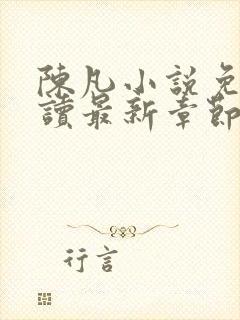 陳凡小說免
讀最新章節
行言